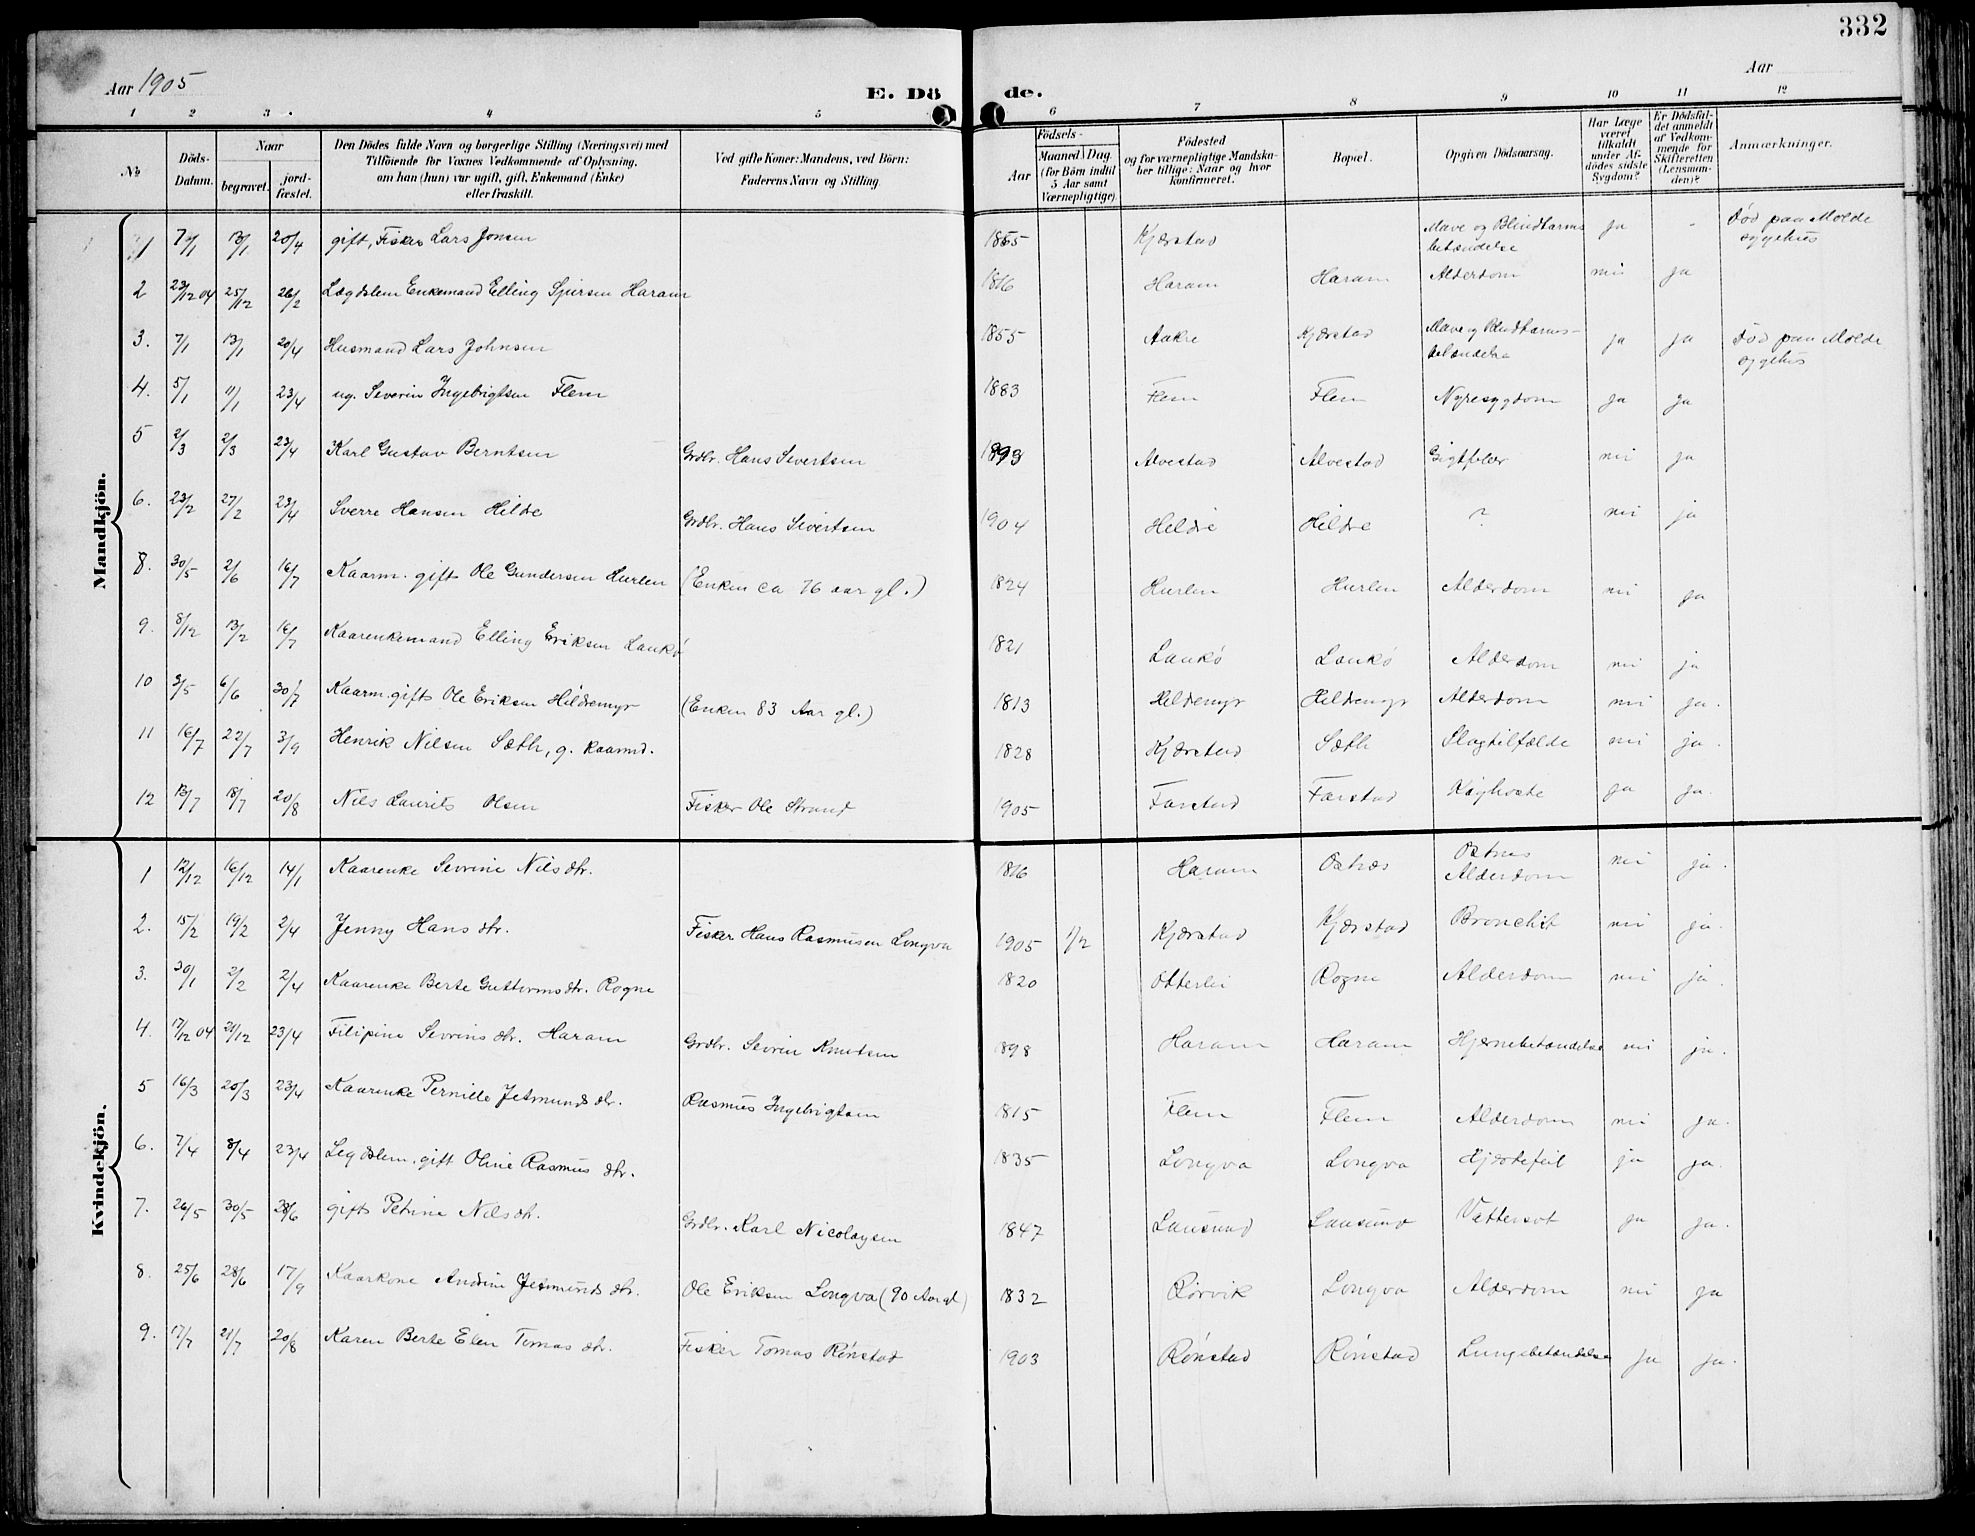 332
Aar 1905
E. Dö de.
Aar
1 2 3 4 5 6 7 8 9 10 11 12
No
Döds-Datum.
Naar
begravet.
jord-fæstet.
Den Dödes fulde Navn og borgerlige Stilling (Næringsvei) med
Tilföiende for Voxnes Vedkommende af Oplysning,
om han (hun) var ugift, gift, Enkemand (Enke)
eller fraskilt.
Ved gifte Koner: Mandens, ved Börn:
Faderens Navn og Stilling.
Födsels-
Aar
Maaned Dag
(for Börn indtil
5 Aar samt
Værnepligtige)
Födested
og for værnepligtige Mandska-
ber tillige: Naar og hvor
konfirmeret.
Bopæl.
Opgiven Dödsaarsag.
Har Læge
været
tilkaldt
under Af-
dödes sidste
Sygdom?
Er Dödsfal-
det anmeldt
af Vedkom-
mende for
Skifteretten
(Lensman-
den)?
Anmærkninger.
Mandkjön.
1 7/1 13/1 20/4 gift, Fisker Lars Jonsen 1855 Kjærstad Mave og Blindtarms betændelse ja - Död paa Molde sygehus
2 23/12 04 25/12 26/2 Lægdslem Enkemand Elling Sjursen Haram 1816 Haram Haram Alderdom nei ja
3. 7/1 13/1 20/4 Husmand Lars Johnsen 1855 Aakre Kjærstad Mave og Blindtarms-betændelse ja ja Död paa Molde sygehus
4. 5/1 11/1 23/4 ug. Severin Ingebrigtsen Flem 1883 Flem Flem Nyresygdom ja ja
5 2/3 2/3 23/4 Karl Gustav Berntsen Grdbr. Hans Sivertsen 1893 Alvestad Alvestad Gigtfeber nei ja
6. 23/2 27/2 23/4 Sverre Hansen Hildre Grdbr. Hans Sivertsen 1904 Hildre Hildre ? nei ja
8. 30/5 2/6 16/7 Kaarm. gift Ole Gundersen Hurlen (Enken ca 76 aar gl.) 1824 Hurlen Hurlen Alderdom nei ja
9. 8/12 13/2 16/7 Kaarenkemand Elling Eriksen Laukö 1821 Laukö Laukö Alderdom nei ja
10 3/5 6/6 30/7 Kaarm. gift Ole Eriksen Hildremyr (Enken 83 Aar gl.) 1813 Hildremyr Hildremyr Alderdom nei ja.
11 16/7 22/7 3/9 Henrik Nilsen Sæth, g. kaarmd. 1828 Kjærstad Sæth Slagtilfælde nei ja.
12 13/7 18/7 20/8 Nils Laurits Olsen Fisker Ole Strand 1905 Farstad Farstad Kighoste ja ja.
Kvindekjön.
1 12/12 16/12 14/1 Kaarenke Sevrine Nilsdtr. 1816 Haram Ostnes Ostnes Alderdom nei ja.
2. 15/2 19/2 2/4 Jenny Hansdtr. Fisker Hans Rasmusen Longva 1905 1/2 Kjærstad Kjærstad Bronchit nei ja.
3. 30/1 2/2 2/4 Kaarenke Berte Guttormsdtr. Rogne 1820 Otterlei Rogne Alderdom nei ja.
4. 17/12 04 21/12 23/4 Filipine Sevrinsdtr. Haram Grdbr. Sevrin Knutsen 1898 Haram Haram Hjernebetændelse nei ja.
5 16/3 20/3 23/4 Kaarenke Pernille Jetmundsdtr. Rasmus Ingebrigtsen 1815 Flem Flem Alderdom nei ja.
6. 7/4 8/4 23/4 Legdslem. gift Oline Rasmusdtr. 1835 Longva Longva Hjertefeil ja ja.
7. 26/5 30/5 28/6 gift Petrine Nilsdtr. Grdbr. Karl Nicolaysen 1847 Lausund Lausund Vattersot ja ja.
8. 25/6 28/6 17/9 Kaarkone Andrine Jetmundsdtr. Ole Eriksen Longva (90 Aar gl) 1832 Rörvik Longva Alderdom nei ja
9. 17/7 21/7 20/8 Karen Berte Elen Tomasdtr. Fisker Tomas Rönstad 1903 Rönstad Rönstad Lungebetændelse ja ja.